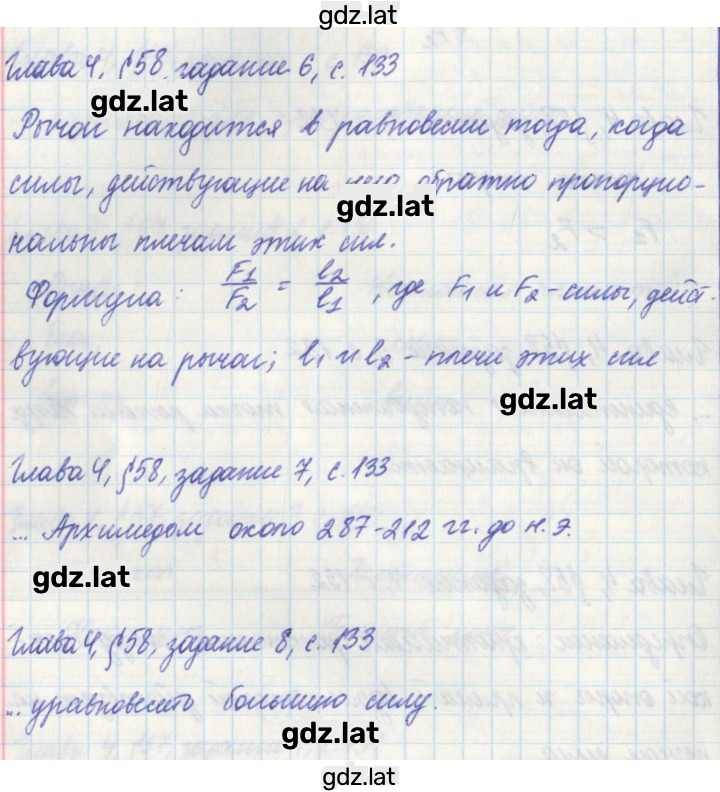 gdz.lat
Глава 4, §58, задание 6, с. 133
gdz.lat
Рычаг находится в равновесии тогда, когда
силы, действующие на него обратно пропорцио-
gdz.lat
нальны плечам этих сил.
Формула: F1/F2 = l2/l1, где F1 и F2 - силы, дейст-
вующие на рычаг; l1 и l2 - плечи этих сил
gdz.lat
Глава 4, §58, задание 7, с. 133
... Архимедом около 287-212 гг. до н.э.
gdz.lat
Глава 4, §58, задание 8, с. 133
... уравновесить большую силу.
gdz.lat
gdz.lat